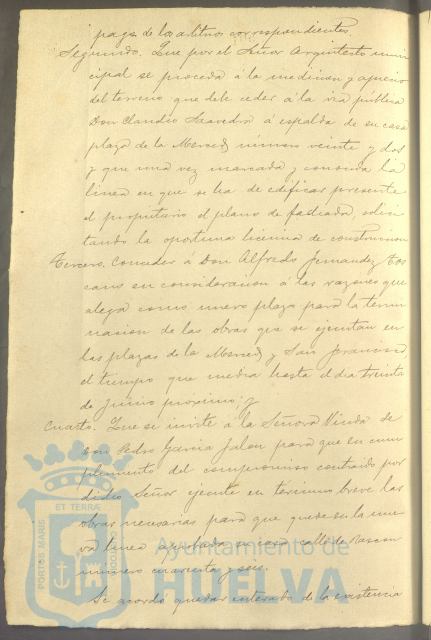 pago de los arbitrios correspondientes.
Segundo. Que por el Señor Arquitecto muni
cipal se proceda á la medicion y aprecio
del terreno que debe ceder á la via pública
Don Claudio Saavedra á espalda de su casa
plaza de la Merced número veinte y dos
y que una vez marcada y conocida la
linea en que se ha de edificar presente
el propietario el plano de fachada, solici
tando la oportuna licencia de construccion
Tercero. Conceder á Don Alfredo Fernandez Tos
cano en consideracion á las razones que
alega como nuevo plazo para la termi
nacion de las obras que se ejecutan en
las plazas de la Merced y San Francisco
el tiempo que media hasta el dia treinta
de Junio próximo; y
Cuarto. Que se invite á la Señora Viuda de
Don Pedro Garcia Jalon para que en cum
plimiento del compromiso contraido por
dicho Señor ejecute en termino breve las
obras necesarias para que quede en la nue
va linea su casa calle de
número cuarenta y seis.
Se acordó quedar enterado de la existencia
PORTUS MARIS
ET TERRÆ
CUSTODIA
Ayuntamiento de
HUELVA